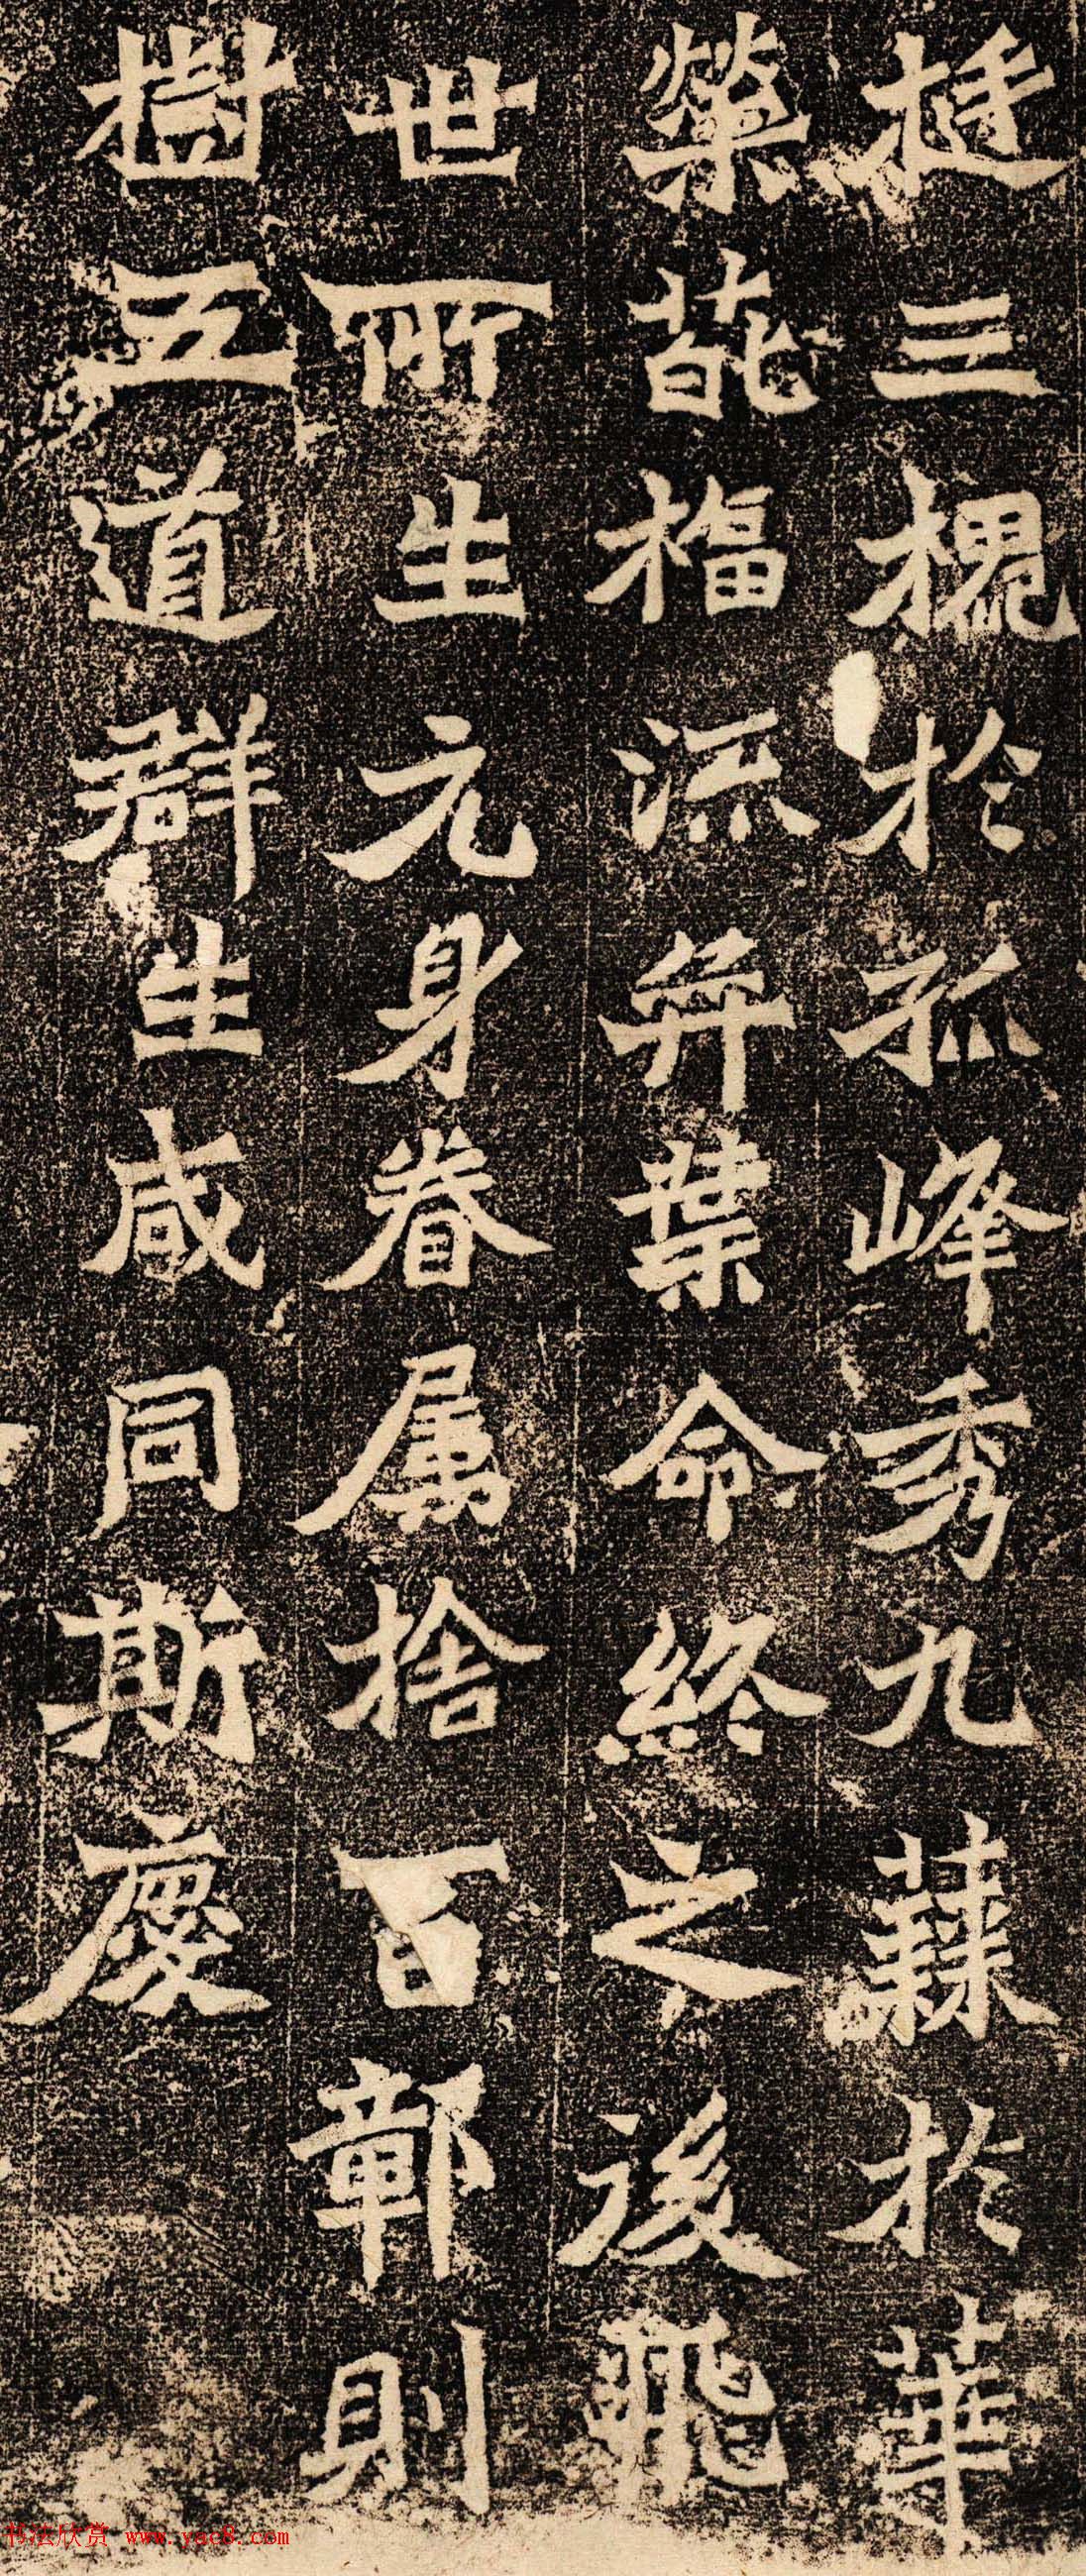 挺三槐於孤峰秀九蕀於華
榮葩福流弈葉命終之後飛
世所生元身眷属捨百鄣則
樹五道群生咸同斯慶
书法欣赏 www.yac8.com